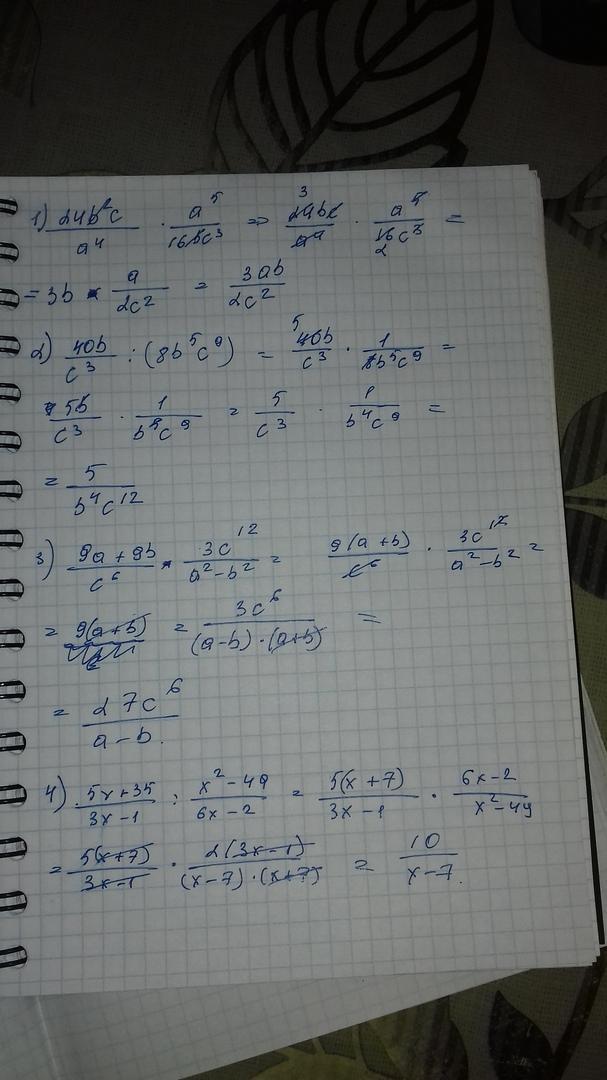 1) 24b²c/a⁴ · a⁵/16bc³ ⇒ 3 24bc/a⁴ · a⁵/16c³ 2 =
= 3b · a/2c² = 3ab/2c²
2) 40b/c³ : (8b⁵c⁹) = 5 40b/c³ · 1/8b⁵c⁹ =
5b/c³ · 1/b⁵c⁹ = 5/c³ · 1/b⁴c⁹ =
= 5/b⁴c¹²
3) 9a + 9b/c⁶ · 3c¹²/a²-b² = 9(a+b)/c⁶ · 3c¹²/a²-b² =
= 9(a+b) = 3c⁶/(a-b)·(a+b) =
= 27c⁶/a-b.
4) 5x+35/3x-1 : x²-49/6x-2 = 5(x+7)/3x-1 · 6x-2/x²-49
= 5(x+7)/3x-1 · 2(3x-1)/(x-7)·(x+7) = 10/x-7.